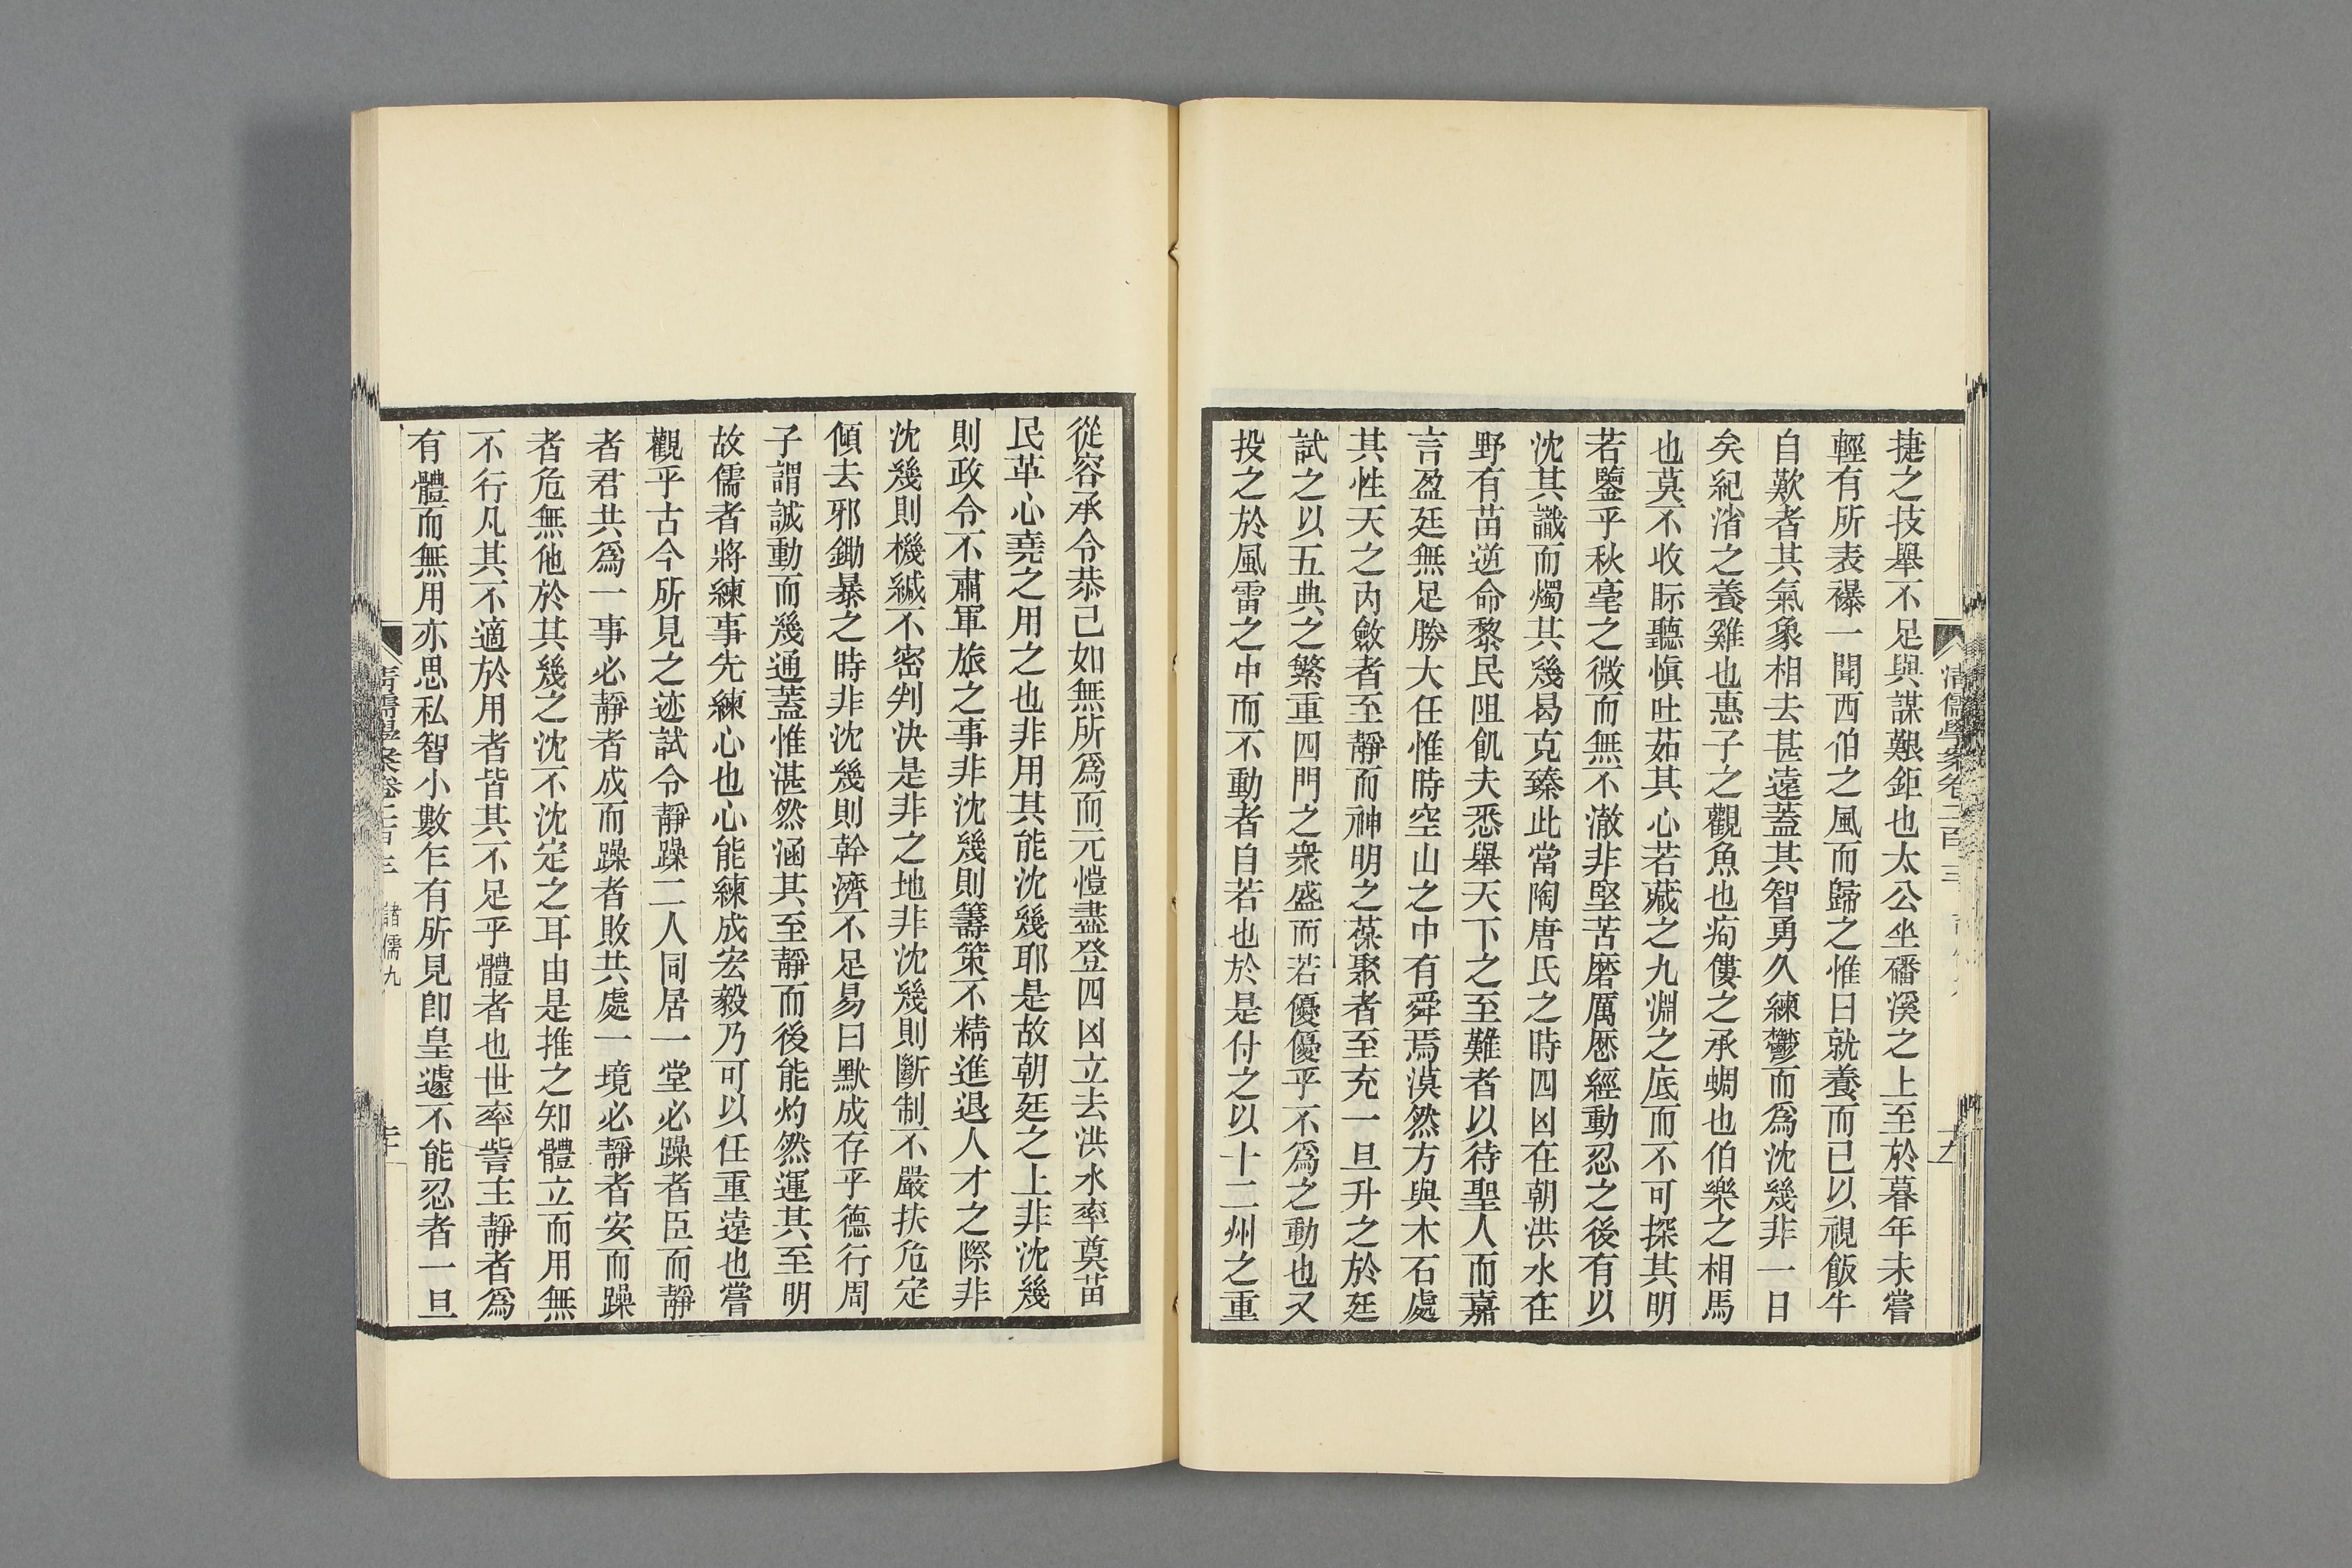 捷之技舉不足與謀艱鉅也太公坐磻溪之上至於暮年未嘗
輕有所表襮一聞西伯之風而歸之惟曰就養而已以視飯牛
自歎者其氣象相去甚遠蓋其智勇久練鬱而爲沈幾非一日
矣紀渻之養雞也惠子之觀魚也痀僂之承蜩也伯樂之相馬
也莫不收眎聽愼吐茹其心若藏之九淵之底而不可探其明
若鑒乎秋毫之微而無不澈非堅苦磨厲厯經動忍之後有以
沈其識而燭其幾曷克臻此當陶唐氏之時四凶在朝洪水在
野有苗逆命黎民阻飢夫悉舉天下之至難者以待聖人而嘉
言盈廷無足勝大任惟時空山之中有舜焉漠然方與木石處
其性天之內斂者至靜而神明之葆聚者至充一旦升之於廷
試之以五典之繁重四門之衆盛而若優優乎不爲之動也又
投之於風雷之中而不動者自若也於是付之以十二州之重
清儒學案卷二百三
十九
從容承令恭己如無所爲而元愷盡登四凶立去洪水率奠苗
民革心堯之用之也非用其能沈幾耶是故朝廷之上非沈幾
則政令不肅軍旅之事非沈幾則籌策不精進退人才之際非
沈幾則機緘不密判決是非之地非沈幾則斷制不嚴扶危定
傾去邪鋤暴之時非沈幾則幹濟不足易曰默成存乎德行周
子謂誠動而幾通蓋惟湛然涵其至靜而後能灼然運其至明
故儒者將練事先練心也心能練成宏毅乃可以任重遠也嘗
觀乎古今所見之迹試令靜躁二人同居一堂必躁者臣而靜
者君共爲一事必靜者成而躁者敗共處一境必靜者安而躁
者危無他於其幾之沈不沈定之耳由是推之知體立而用無
不行凡其不適於用者皆其不足乎體者也世率訾主靜者爲
有體而無用亦思私智小數乍有所見卽皇遽不能忍者一旦
清儒學案卷二百三 諸儒九